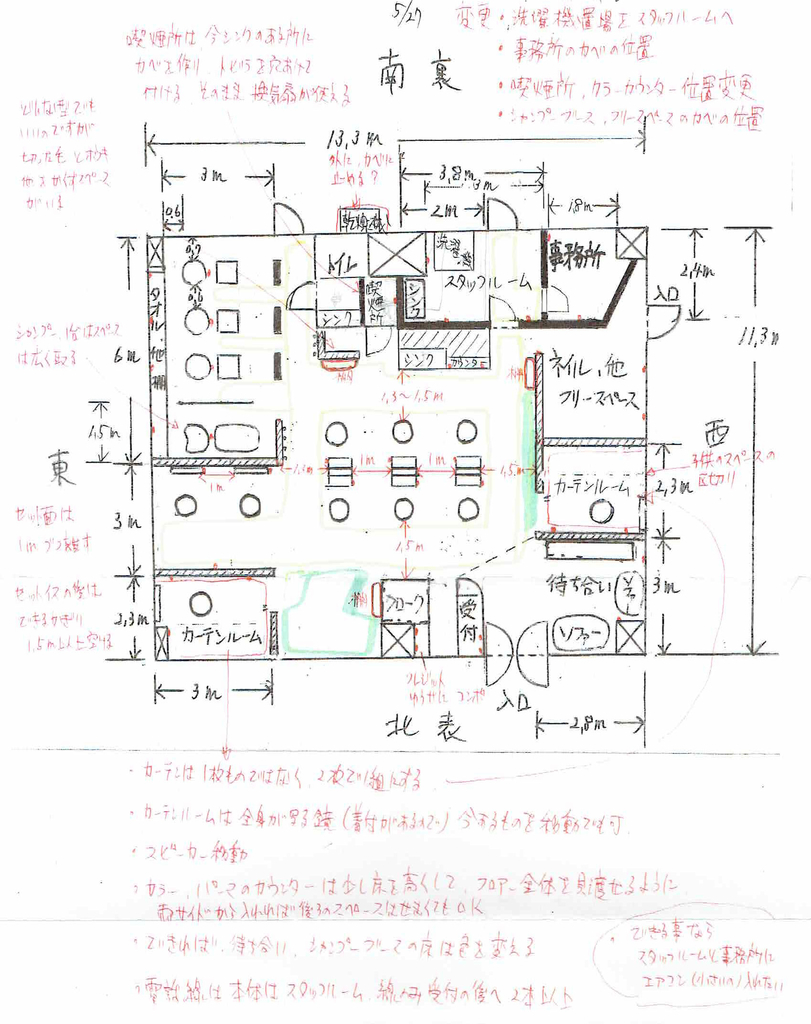 5/27
変更・洗濯機置場をスタッフルームへ
・事務所のカベの位置
・喫煙所、カラーカウンター位置変更
・シャンプーブース、フリースペースのカベの位置
喫煙所は今シンクのある所に
カベを作り、トビラを穴あけて
付ける そのまま換気扇が使える
南 裏
どんな型でも
いいのですが
がいる
13.3m
外に、カベに
止める?
3m
3.8m
3m
2m
1.8m
0.6
乾燥機
トイレ
洗濯機
事務所
2.4m
入口
0.7
0.6
タオル他棚
喫煙所
シンク
スタッフルーム
シンク
シンク
カウンター
11.3m
シャンプー1台はスペース
は広く取る
6m
棚
棚
ネイル、他
フリースペース
1.3〜1.5m
1.5m
東
西
1m
1m
1m
1.5m
カーテンルーム
2.3m
子供のスペースの
区切り
セット面は
1mづつ離す
3m
1.5m
セットイスの後は
できるかぎり
1.5m以上空ける
2.3m
カーテンルーム
棚
クローク
受付
待ち合い
ソファー
ソファー
3m
3m
クレジット
ゆうせん コンポ
入口
2.8m
北 表
・カーテンは1枚ものではなく、2枚で1組にする
・カーテンルームは全身が写る鏡(着付があるので)今あるものを移動でも可
・スピーカー移動
・カラー、パーマのカウンターは少し床を高くして、フロアー全体を見渡せるように
両サイドから入れれば後ろのスペースはせまくてもOK
・できれば、待ち合い、シャンプーブースの床は色を変える
・電話線は本体はスタッフルーム、線のみ受付の後へ2本以上
・できる事なら
スタッフルームと事務所に
エアコン(小さいの)入れたい